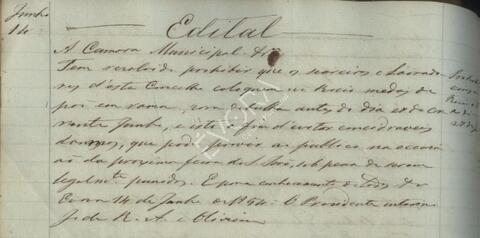 Junho
14
Edital
A Camara Municipal &c
Tem resolvido prohibir que os seareiros e Lavrado
res d'este Concelho coloquem no Rocio medas de
pão em rama, ou debulha antes do dia 28 do Cor
rente Junho, e isto a fim d'evitar consideraveis
damnos, que pode provir ao publico na occasi
ão da proxima feira de S. João, sob pena de serem
legalmte punidos. E para conhecimento de todos &c
Evora 14 de Junho de 1854. O Presidente interino
J. de R. A. e Oliveira